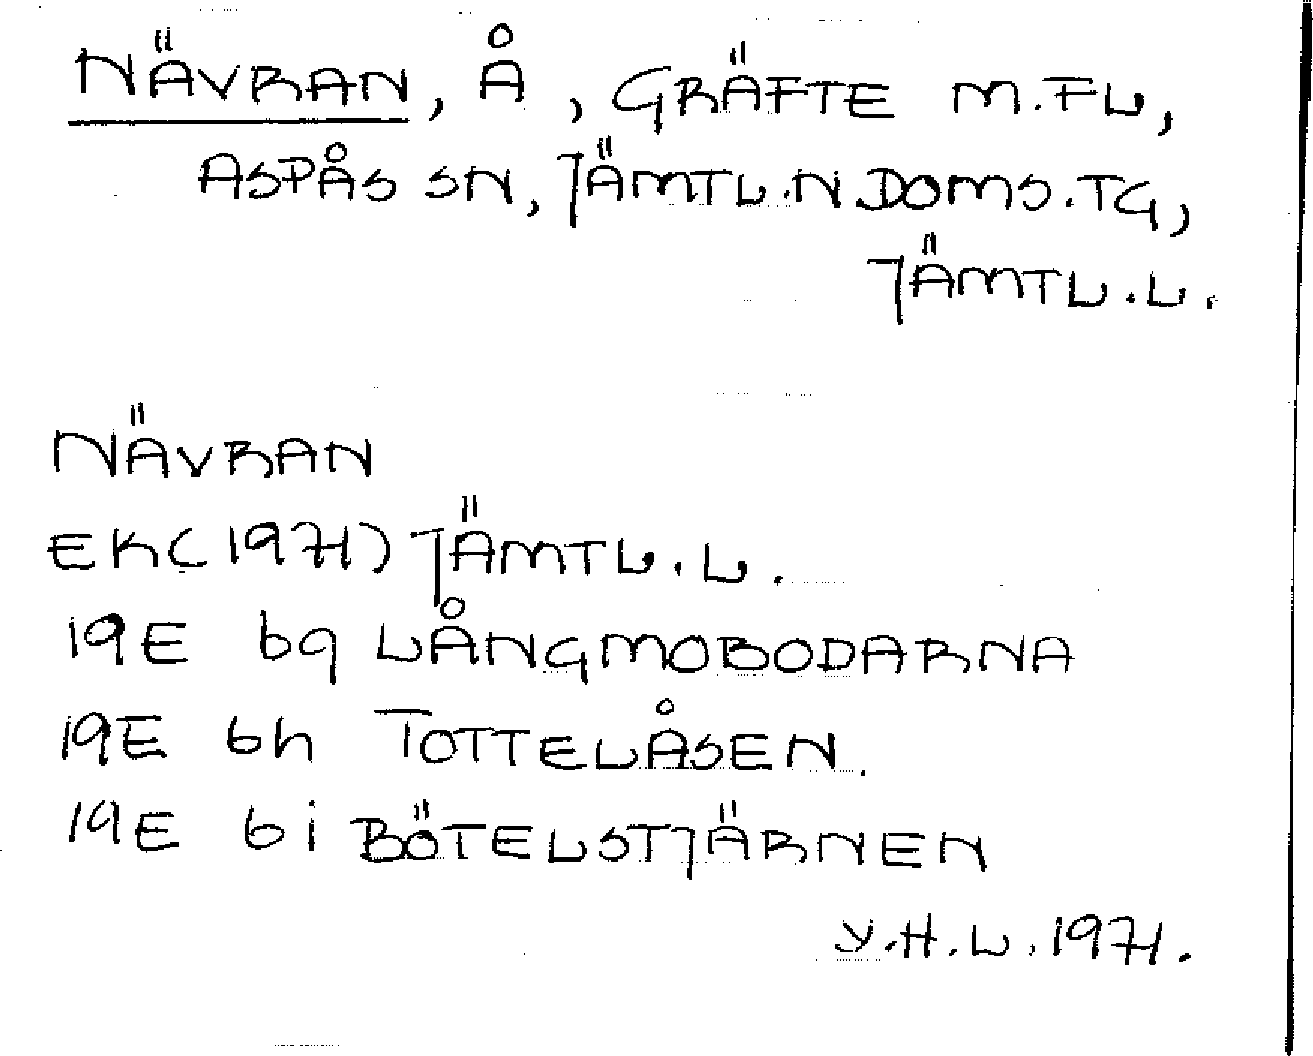 NÄVRAN, Å, GRÄFTE M.FL,
ASPÅS SN, JÄMTL.N.DOMS.TG,
JÄMTL.L.
NÄVRAN
EK(1971) JÄMTL.L.
19E 6g LÅNGMOBODARNA
19E 6h TOTTELÅSEN.
19E 6i BÖTELSTJÄRNEN
Y.H.L.1971.